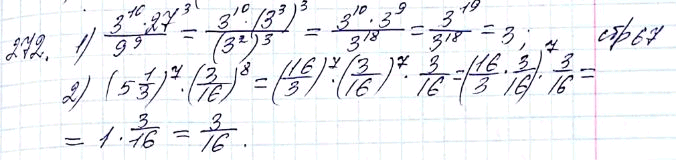 272. 1) 3^10 · 27^3 / 9^9 = 3^10 · (3^3)^3 / (3^2)^3 = 3^10 · 3^9 / 3^18 = 3^19 / 3^18 = 3; стр 67
2) (5 1/3)^7 · (3/16)^8 = (16/3)^7 · (3/16)^7 · 3/16 = (16/3 · 3/16)^7 · 3/16 =
= 1 · 3/16 = 3/16.